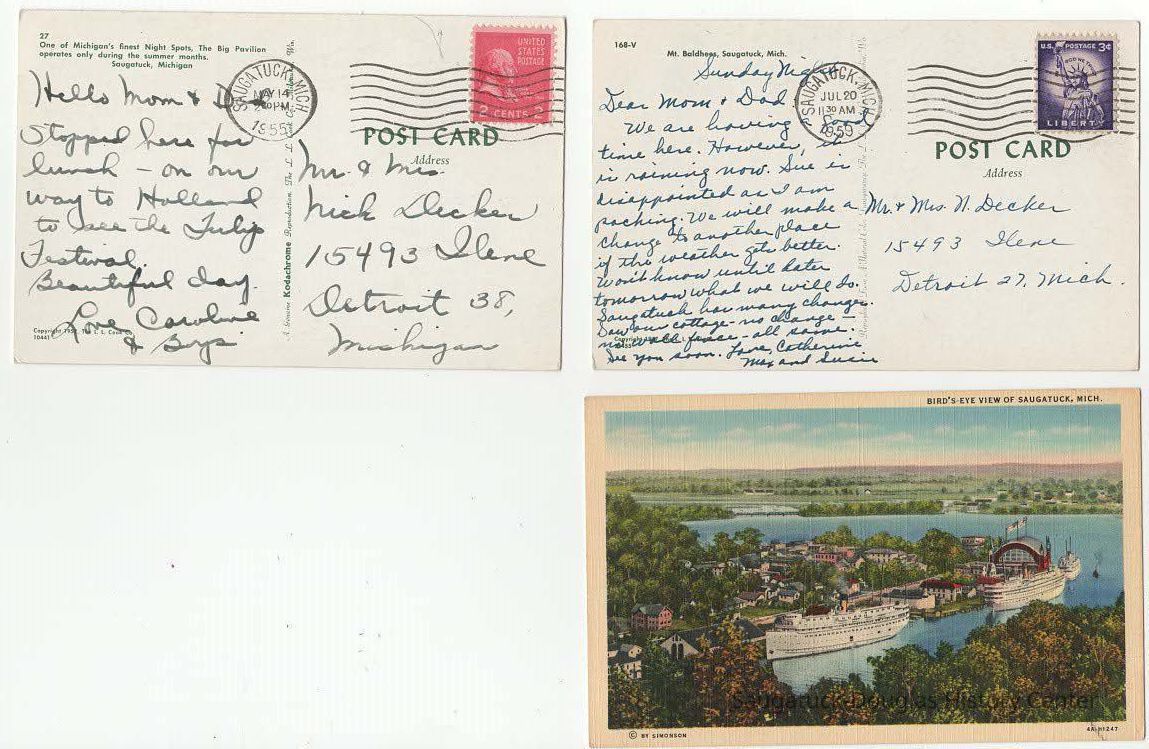 27
One of Michigan's finest Night Spots, The Big Pavilion
operates only during the summer months.
Saugatuck, Michigan
Hello Mom & D
Stopped here for
lunch - on our
way to Holland
to see the Tulip
Festival.
Beautiful day.
Love Caroline
& Boys
10441
A Genuine Kodachrome Reproduction
SAUGATUCK MICH
MAY 14
PM
1955
UNITED
STATES
POSTAGE
2 CENTS 2
POST CARD
Address
Mr. & Mrs.
Nick Decker
15493 Ilene
Detroit 38,
Michigan
168-V
Mt. Baldhead, Saugatuck, Mich.
Sunday Night
Dear Mom & Dad
We are having good
time here. However, it
is raining now. Sue is
disappointed as I am
packing. We will make a
change to another place
if the weather gets better.
Won't know until later
tomorrow what we will do.
Saugatuck has many changes.
Saw our cottage - no change -
fence - all same.
See you soon. Love, Catherine
Max and Susie
SAUGATUCK, MICH.
JUL 20
11 30 AM
1959
U.S. POSTAGE 3¢
IN GOD WE TRUST
LIBERTY
POST CARD
Address
Mr. & Mrs. N. Decker
15493 Ilene
Detroit 27, Mich.
BIRD'S-EYE VIEW OF SAUGATUCK, MICH.
Saugatuck-Douglas History Center
© BY SIMONSON
4A-H1247